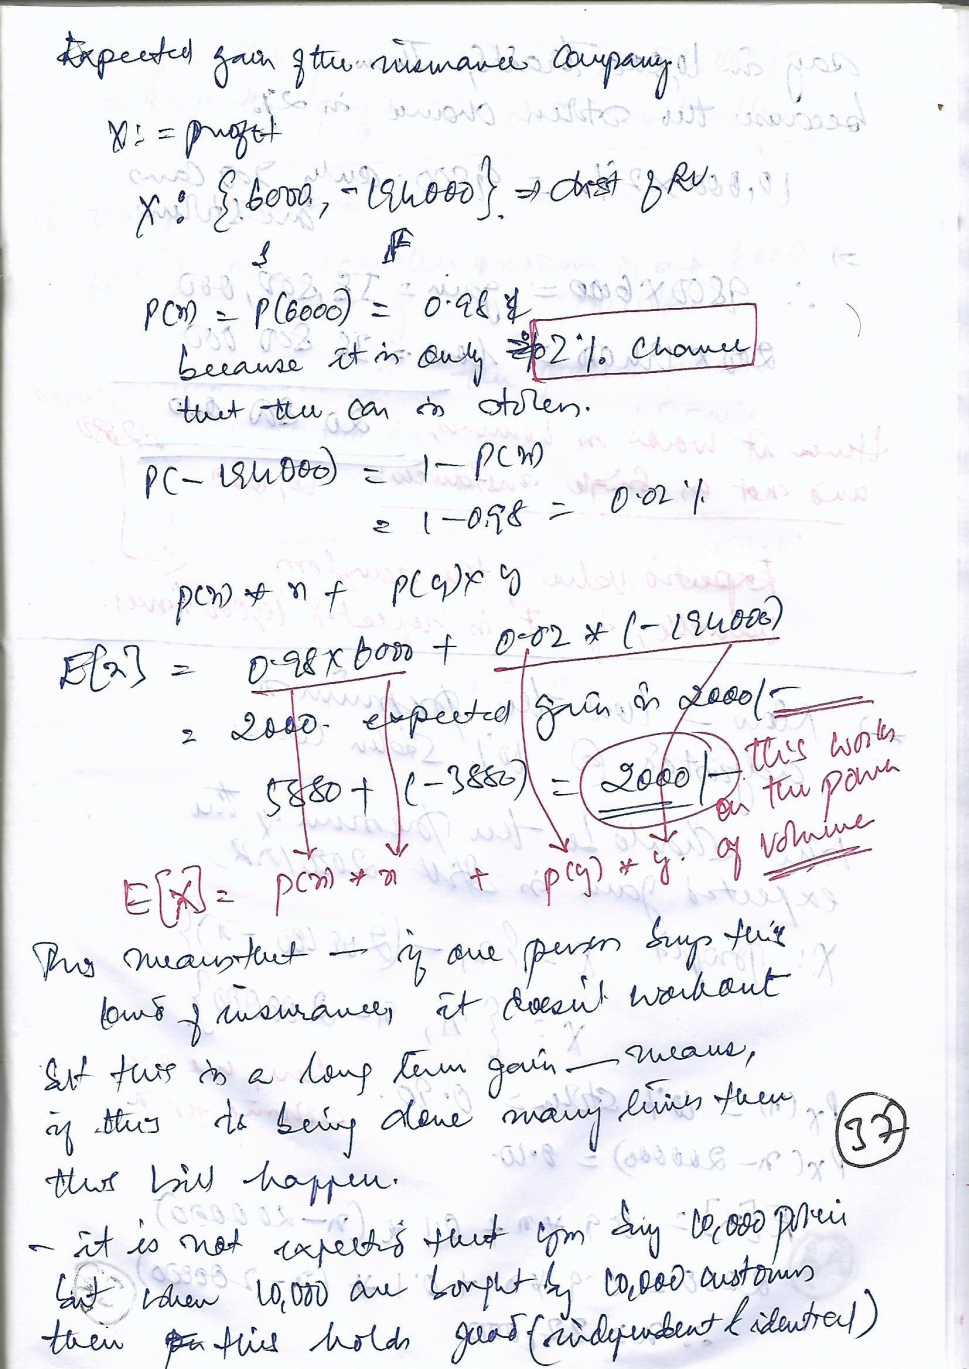 Expected gain of the insurance company.
X: = profit
X: {6000, -194000}. => dist of RV.
S F
P(x) = P(6000) = 0.98 %
because it is only 02 % chance
that the car is stolen.
P(-194000) = 1 - P(x)
= 1 - 0.98 = 0.02 %
P(x) * x + P(y) x y
E[x] = 0.98 x 6000 + 0.02 * (-194000)
= 2000. expected gain is 2000/-
5880 + (-3880) = 2000/- this works
on the power
of volume
E[X] = p(x) * x + p(y) * y.
This means that — if one person buys this
kind of insurance, it doesn't workout
But this is a long term gain — means,
if this is being done many times then
this will happen.
37
- it is not expected that you buy 10,000 policies
but when 10,000 are bought by 10,000 customers
then this holds good (independent & identical)